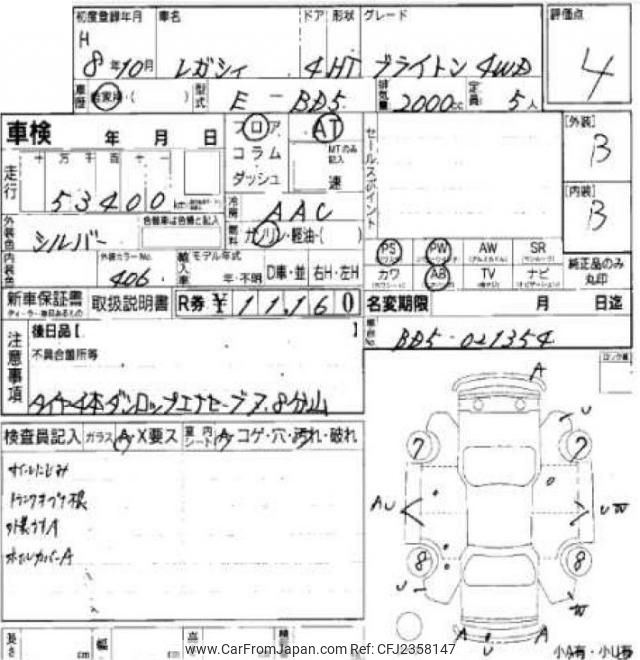 初度登録年月 車名 ドア 形状 グレード 評価点
H
8年10月 レガシィ 4 HT ブライトン 4WD 4
車歴 自家用・( ) 型式 E-BD5 排気量 2000cc 定員 5人
車検 年 月 日 フロア AT セールスポイント [外装] B
コラム MTのみ記入
走行 十 万 千 百 十 一 ダッシュ 速
53400 冷房 AAC [内装] B
外装色 シルバー 色替車は色番と記入 燃料 ガソリン・軽油・( )
PS PW AW SR 純正品のみ丸印
内装色 外装カラーNo. 406 輸入車 モデル年式 年・不明 D車・並 右H・左H カワ AB TV ナビ
新車保証書 取扱説明書 R券 ¥ 11,160 名変期限 月 日迄
注意事項 後日品【 】 車台No. BD5-021354
不具合箇所等
タイヤ4本ダンロップエナセーブ7.8分山
検査員記入 ガラス A・X要ス 室内シート A・コゲ・穴・汚れ・破れ
オイルにじみ
外装キズA
ホイルカバーA
A
U
7 7
AU UW
8 8
U W
A U A
長さ cm 幅 cm
小A有・小U有
www.CarFromJapan.com Ref: CFJ2358147